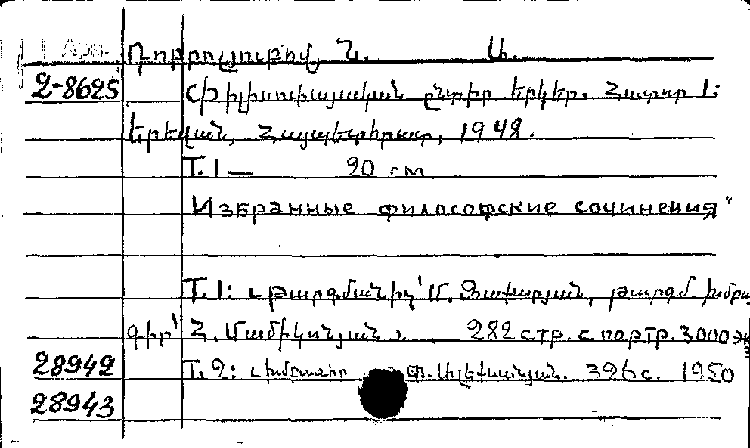 Դոբրոլյուբով, Ն. Ա.
2-8625 Փիլիսոփայական ընտիր երկեր. Հատոր 1:
Երևան, Հայպետհրատ, 1948.
Т. 1 — 20 см
Избранные философские сочинения"
Т. 1: Թարգմանիչ՝ Մ. թարգմ. խմբա
գիր՝ Հ. Մամիկոնյան 282 стр. с портр. 3000 эк
28942 Т. 2: 326 с. 1950
28943